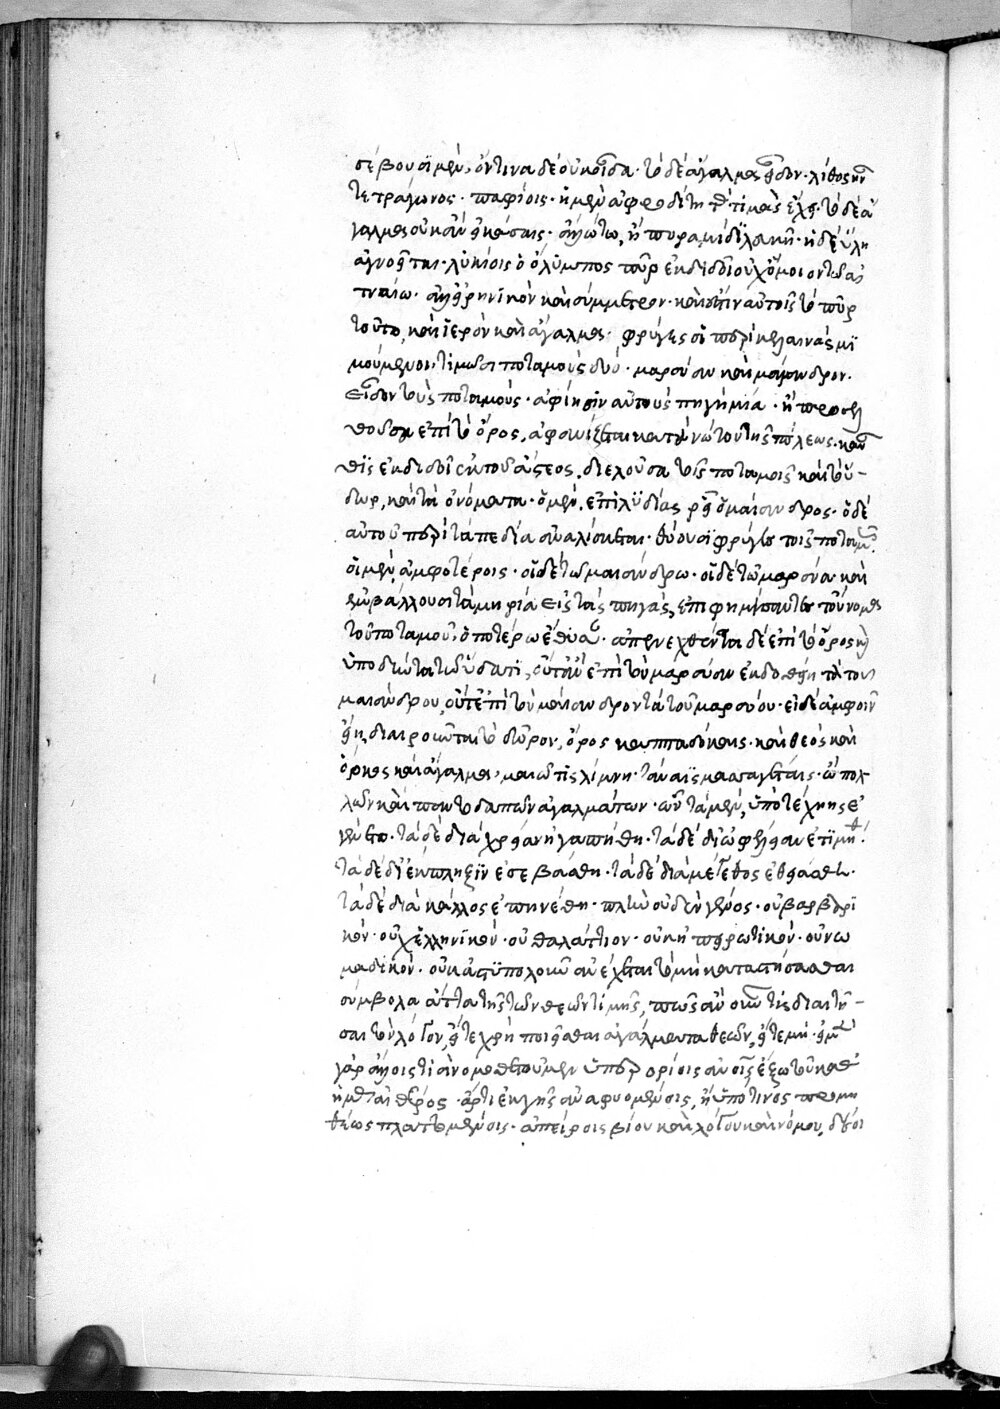 σέβουσϊ μὲν, ὅντινα δὲ οὐκ οἶδα· τὸ δὲ ἄγαλμα εἶδον· λίθος ἦν
τετράγωνος· παφίοις· ἡ μὲν ἀφροδίτη τὰς τιμὰς ἔχει· τὸ δὲ ἄ
γαλμα οὐκ ἂν εἰκάσαις· ἄλλῳ τῳ, ἢ πυραμίδι λευκῆ· ἡ δὲ ὕλη
ἀγνοεῖται· λυκίοις ὁ ὄλυμπος πῦρ ἐκδιδοῖ οὐχ ὅμοιον τῶ αἰ
τναίω· ἀλλ' εἰρηνικὸν καὶ σύμμετρον· καὶ ἐστὶν αὐτοῖς τὸ πῦρ
τοῦτο, καὶ ἱερὸν καὶ ἄγαλμα· φρύγες οἱ περὶ κελαινὰς νε
μόμενοι, τιμῶσι ποταμοὺς δύο· μαρσύαν καὶ μαίανδρον·
εἶδον τοὺς ποταμούς· ἀφίησιν αὐτοὺς πηγὴ μία· ἣ προελ
θοῦσα ἐπὶ τὸ ὄρος, ἀφανίζεται κατὰ νώτου τῆς πόλεως· καὖ
θϊς ἐκδιδοῖ ἐκ τοῦ ἄστεος, διελοῦσα τοῖς ποταμοῖς καὶ τὸ ὕ-
δωρ, καὶ τὰ ὀνόματα· ὁ μὲν, ἐπὶ λυδίας ῥεῖ ὁ μαίανδρος· ὁ δὲ
αὐτοῦ περὶ τὰ πεδία ἀναλίσκεται· θύουσϊ φρύγες τοῖς ποταμοῖς·
οἱ μὲν, ἀμφοτέροις· οἱ δὲ τῶ μαιάνδρω· οἱ δὲ τῶ μαρσύα· καὶ
ἐμβάλλουσι τὰ μηρία εἰς τὰς πηγάς, ἐπιφημίσαντες τοὔνομα
τοῦ ποταμοῦ, ὁποτέρω ἔθυσαν· ἀπενεχθέντα δὲ ἐπὶ τὸ ὄρος καὶ
ὑποδύντα τῶ ὕδατϊ, οὔτ' ἂν ἐπὶ τὸν μαρσύαν ἐκδοθείη τὰ τοῦ
μαιάνδρου, οὔτε ἐπὶ τὸν μαίανδρον τὰ τοῦ μαρσύου· εἰ δὲ ἀμφοῖν
εἴη, διαιροῦνται τὸ δῶρον, ὄρος καππαδόκαις· καὶ θεὸς καὶ
ὅρκος καὶ ἄγαλμα, μαιώταις λίμνη· τάναϊς μασσαγέταις· ὢ πολ
λῶν καὶ παντοδαπῶν ἀγαλμάτων· ὧν τὰ μὲν, ὑπὸ τέχνης ἐ
γένετο· τὰ δὲ διὰ χρείαν ἠγαπήθη· τὰ δὲ δι' ὠφέλειαν ἐτιμήθη·
τὰ δὲ δι' ἔκπληξϊν ἐσεβάσθη· τὰ δὲ διὰ μέγεθος ἐθειάσθη·
τὰ δὲ διὰ κάλλος ἐπῃνέθη· πλὴν οὐδὲν γένος· οὐ βαρβαρϊ
κὸν· οὐχ ἑλληνϊκόν· οὐ θαλάττιον· οὐκ ἠπειρωτικόν· οὐ νο
μαδικόν· οὐκ ἀστϋπολοῦν ἀνέχεται τὸ μὴ καταστήσασθαι
σύμβολα ἄττα τῆς τῶν θεῶν τιμῆς, πῶς ἂν οὖν τὶς διαιτή-
σαι τὸν λόγον, εἴτε χρὴ ποιεῖσθαι ἀγάλματα θεῶν, εἴτε μή· εἰ μὲν
γὰρ ἄλλοις τισὶ νομοθετοῦμεν ὑπερορίοις ἀνθρώποις ἔξω τοῦ καθ'
ἡμᾶς αἰθέρος· ἄρτι ἐκ γῆς ἀναφυομένοις, ἢ ὑπό τινος προμη
θέως πλαττομένοις· ἀπείροις βίου καὶ λόγου καὶ νόμου, δέοι